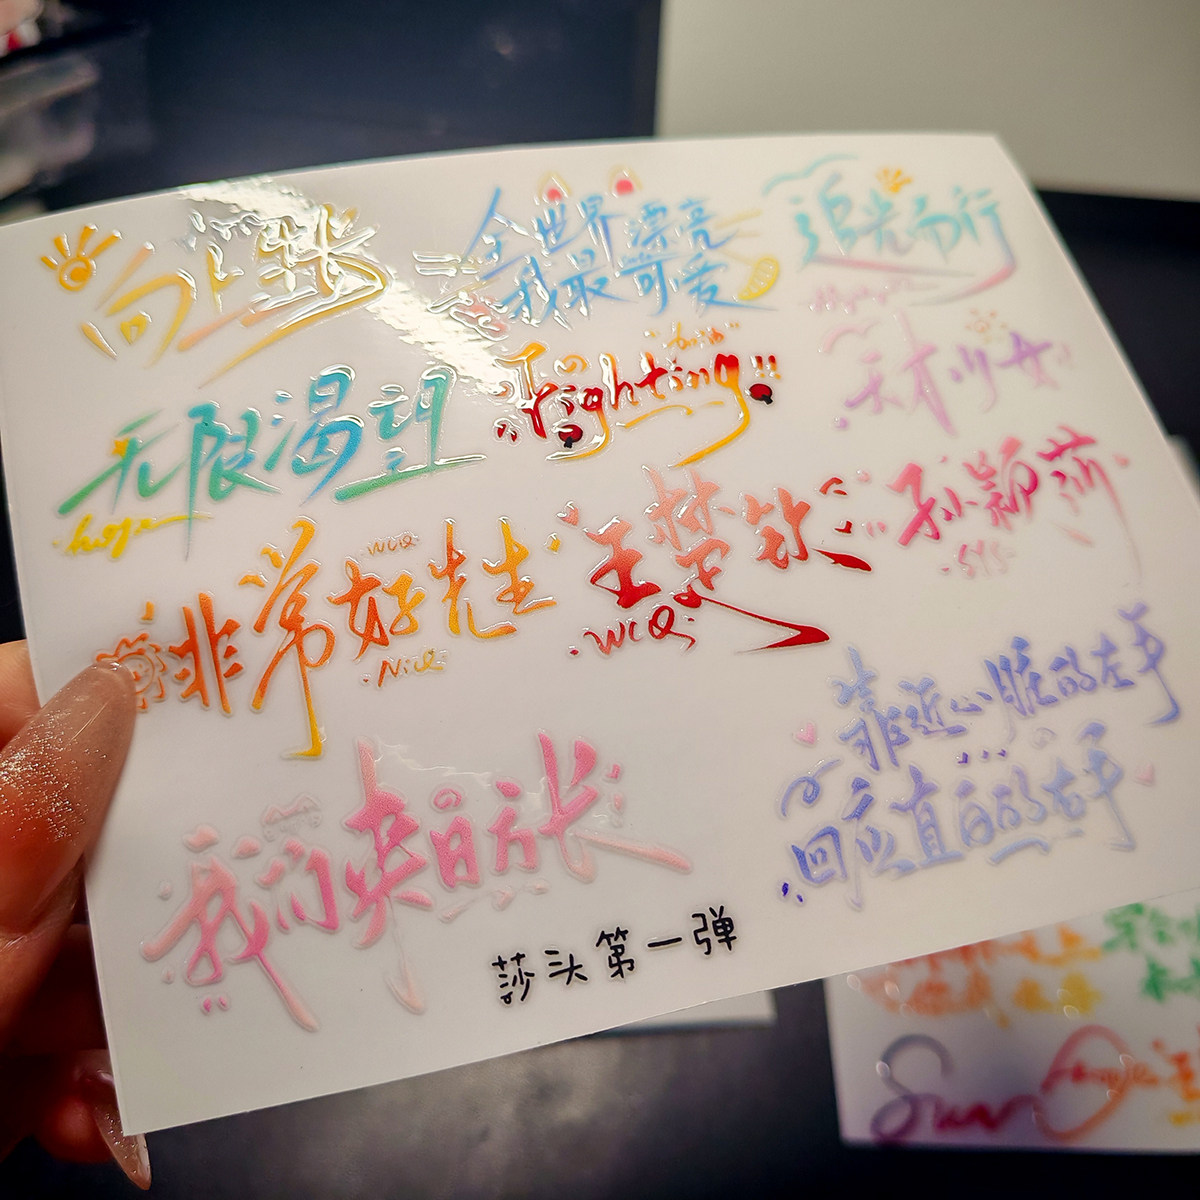 向上生长
全世界漂亮
我最可爱
追光而行
无限渴望
hope
Fighting!!
天才少女
非常好先生
WCQ
Nice
王楚钦
WCQ
孙颖莎
SYS
靠近心脏的左手
回应直白的右手
我们来日方长
莎头第一弹
Sun